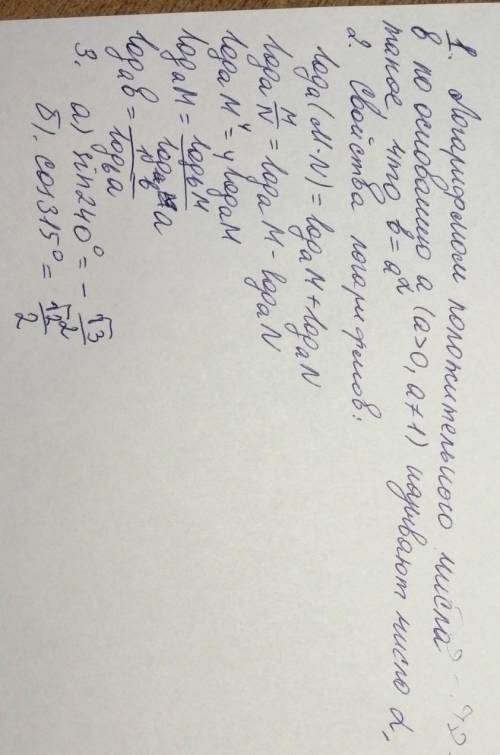 1. Логарифмом положительного числа
в по основанию a (a>0, a≠1) называют число α,
такое что в=a^α
2. Свойства логарифмов:
loga(M·N)=logaM+logaN
loga M/N = logaM-logaN
logaM^γ=γlogaM
logaM=logвM/logвa
logaв=/logвa
3. а) sin240°=-√3/2
б). cos315°=√2/2